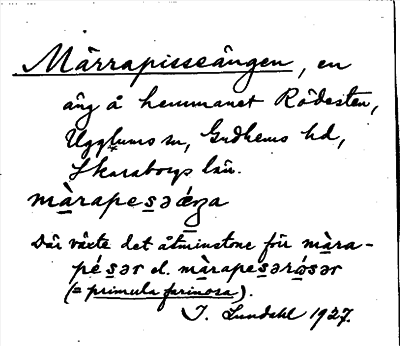 Märrapisseängen, en
äng å hemmanet Rödesten,
Ugglums sn, Gudhems hd,
Skaraborgs län.
màrapesəǿŋa
Där växte det åtminstone för màra-
pésər el. màrapesərósər
(= primula farinosa).
J. Lundahl 1927.